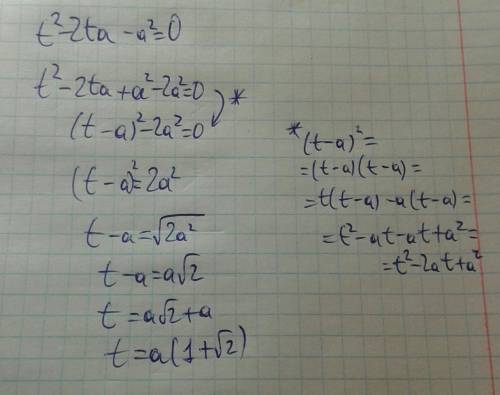 t²-2ta-a²=0
t²-2ta+a²-2a²=0
(t-a)²-2a²=0 *
(t-a)²=2a²
t-a=√2a²
t-a=a√2
t=a√2+a
t=a(1+√2)
*(t-a)²=
=(t-a)(t-a)=
=t(t-a)-a(t-a)=
=t²-at-at+a²=
=t²-2at+a²